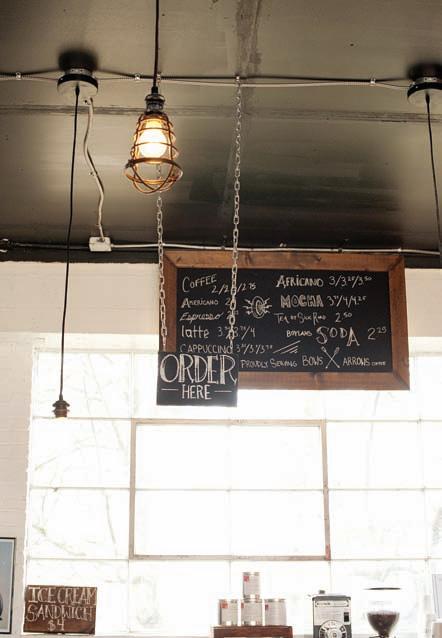 COFFEE 2/2 /2.75
AMERICANO 2
Espresso
latte 3 /4
CAPPUCCINO 3 /3.5/3.75
AFRICANO 3/3.25/3.50
MOCHA 3.75/4/4.25
TEA BY SILK ROAD 2.50
BOYLANS SODA 2.25
PROUDLY SERVING BOWS ARROWS COFFEE
ORDER
HERE
ICE CREAM
SANDWICH
$4